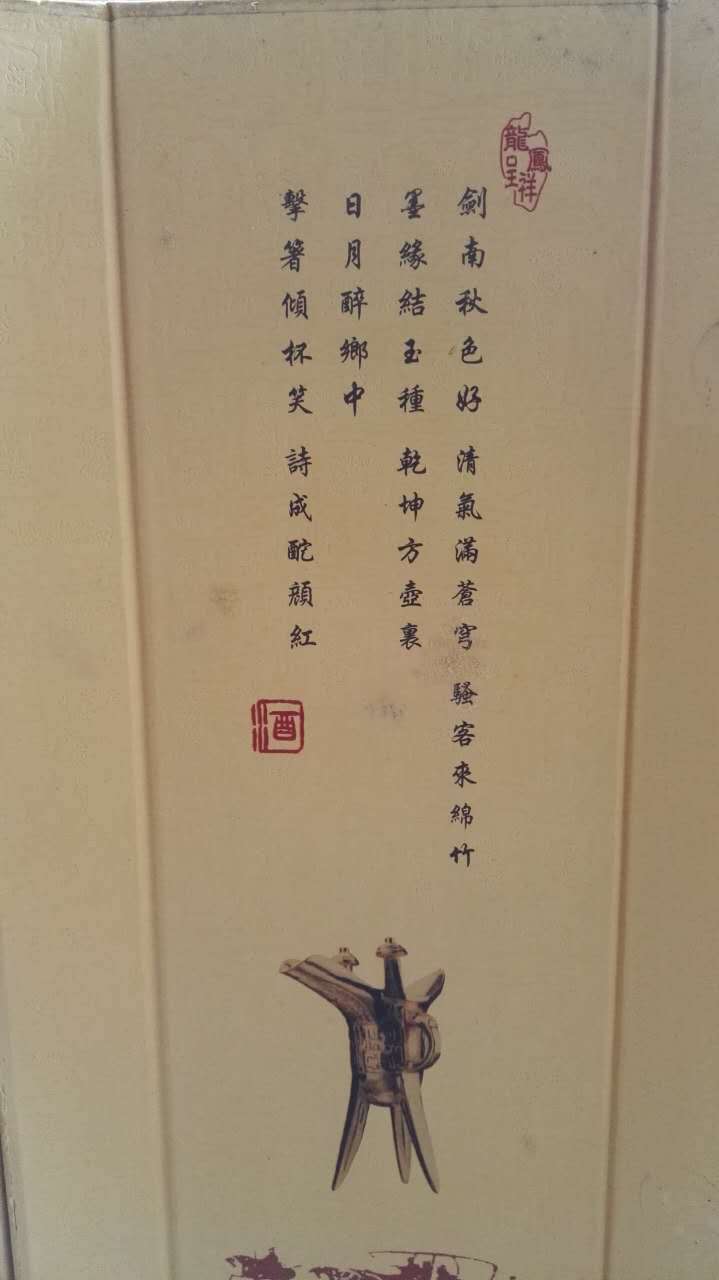 龍鳳呈祥
劍南秋色好 清氣滿蒼穹 騷客來綿竹
墨緣結玉種 乾坤方壺裏
日月醉鄉中
擊箸傾杯笑 詩成酡顏紅
酒